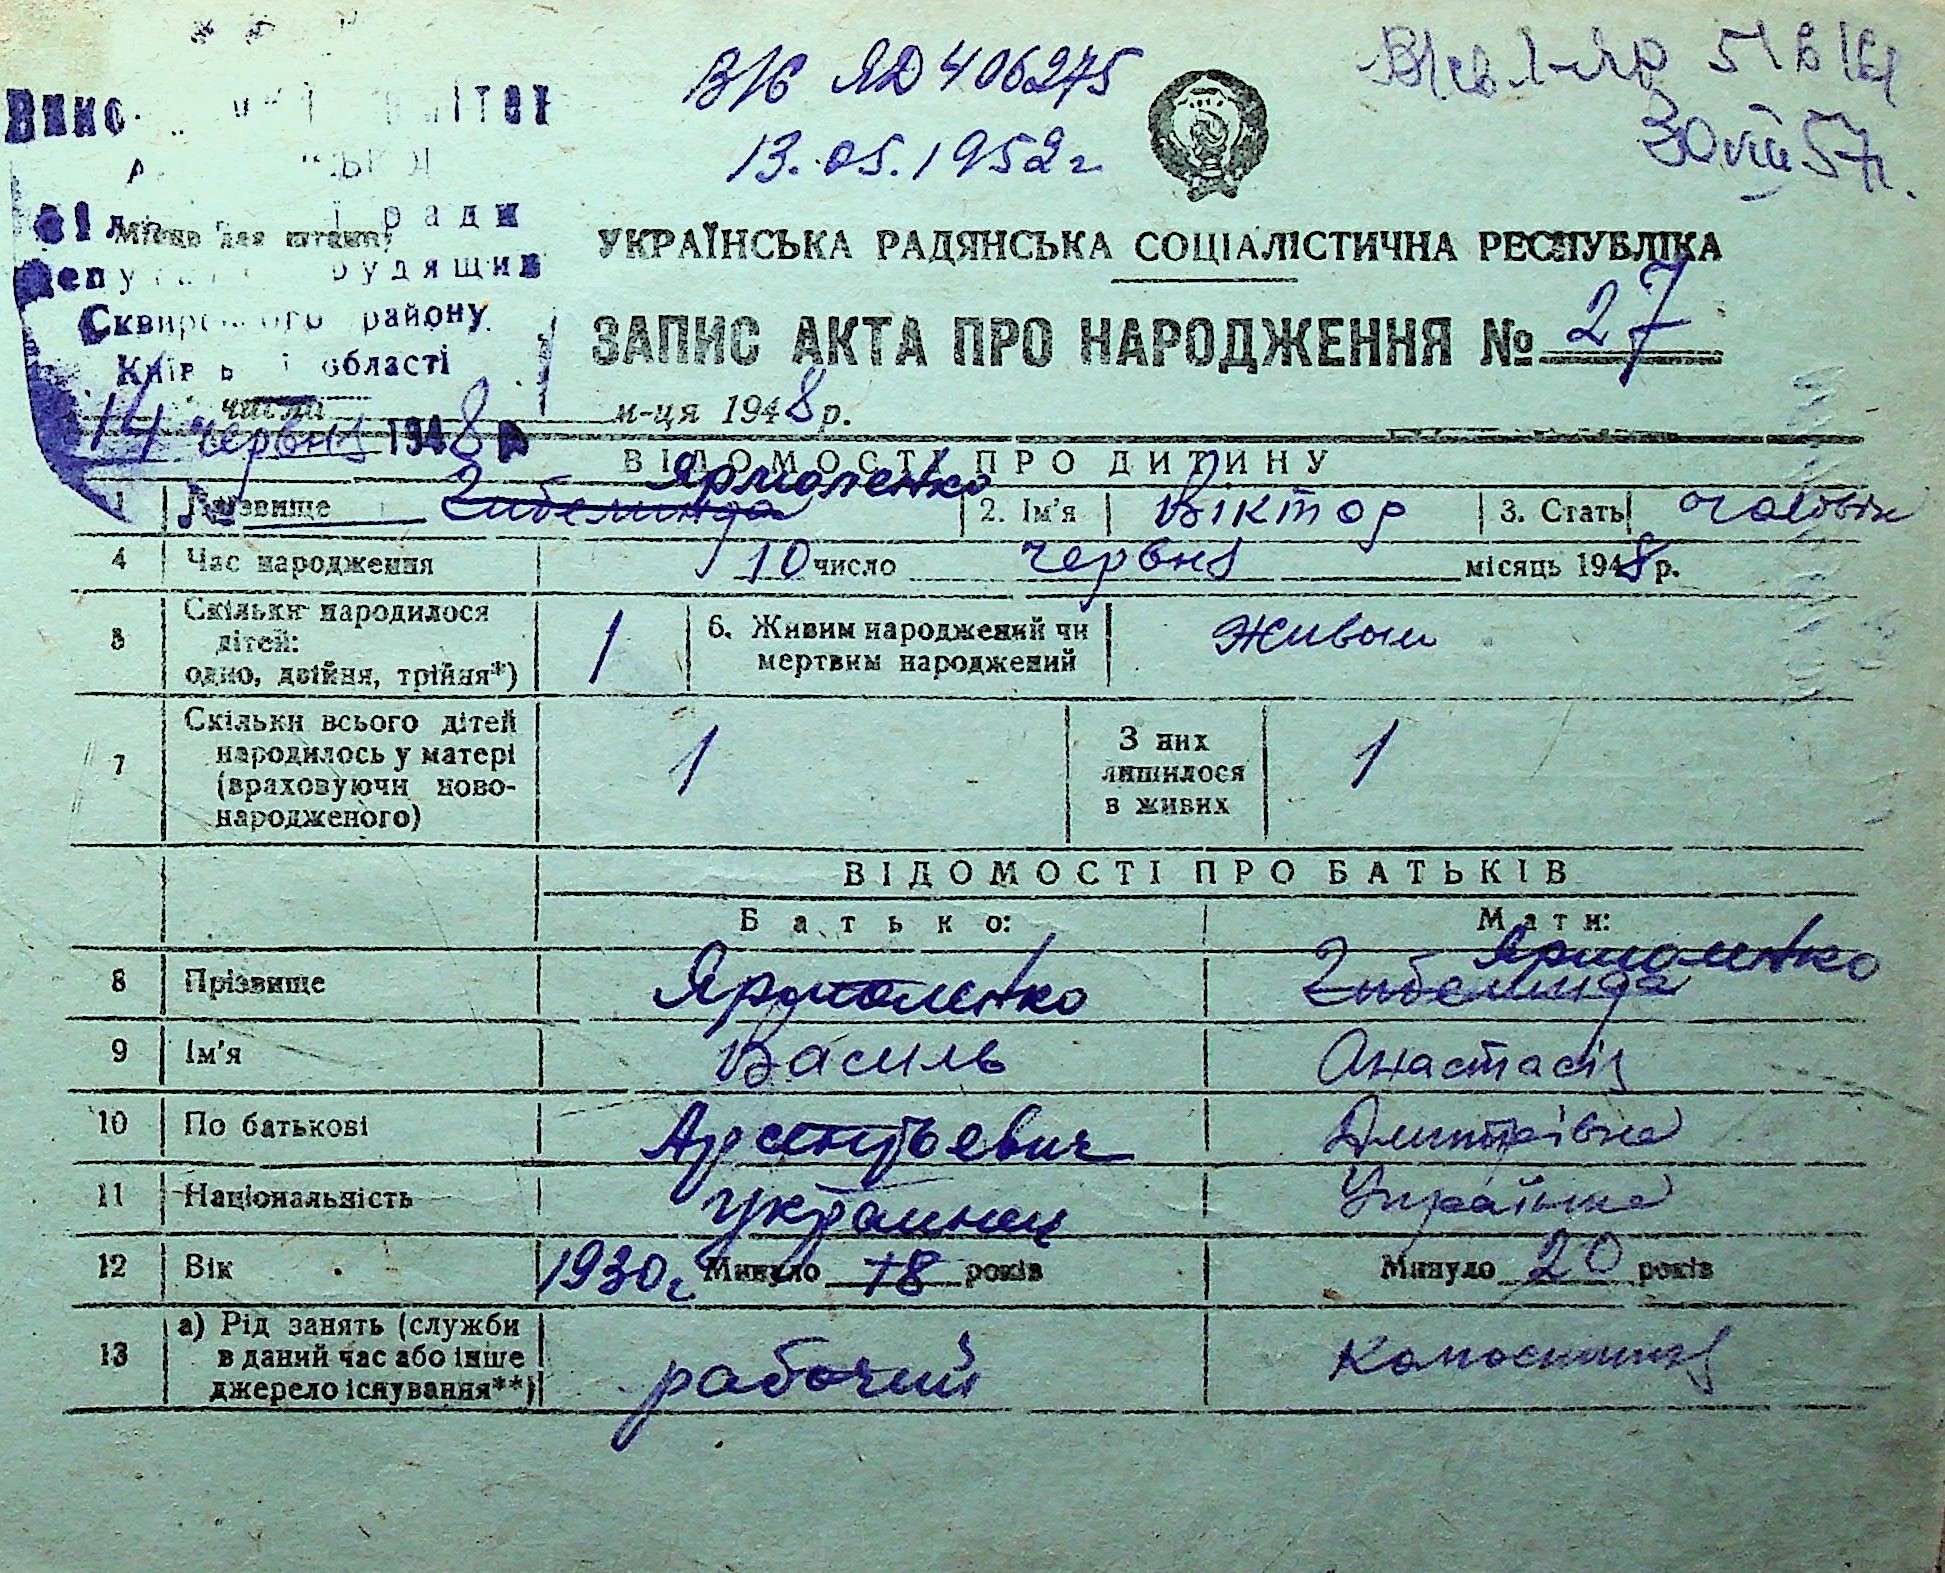 В/с ЯД 406275
13.05.1952 г
30 VIII 57 г.
ради
Сквирського району
області
Місце для штампу
14 червня 1948 р
числа
УКРАЇНСЬКА РАДЯНСЬКА СОЦІАЛІСТИЧНА РЕСПУБЛІКА
ЗАПИС АКТА ПРО НАРОДЖЕННЯ № 27
м-ця 1948 р.
ВІДОМОСТІ ПРО ДИТИНУ
Ярмоленко
1 Прізвище 2. Ім'я Віктор 3. Стать
4 Час народження 10 число червня місяць 1948 р.
5 Скільки народилося дітей: одно, двійня, трійня*) 1 6. Живим народжений чи мертвим народжений живым
7 Скільки всього дітей народилось у матері (враховуючи новонародженого) 1 З них лишилося в живих 1
ВІДОМОСТІ ПРО БАТЬКІВ
Батько: Мати:
8 Прізвище Ярмоленко Ярмоленко
9 Ім'я Василь Анастасія
10 По батькові Арентьевич Дмитрівна
11 Національність украинец Українка
12 Вік 1930 г. Минуло 18 років Минуло 20 років
13 а) Рід занять (служби в даний час або інше джерело існування**) рабочий